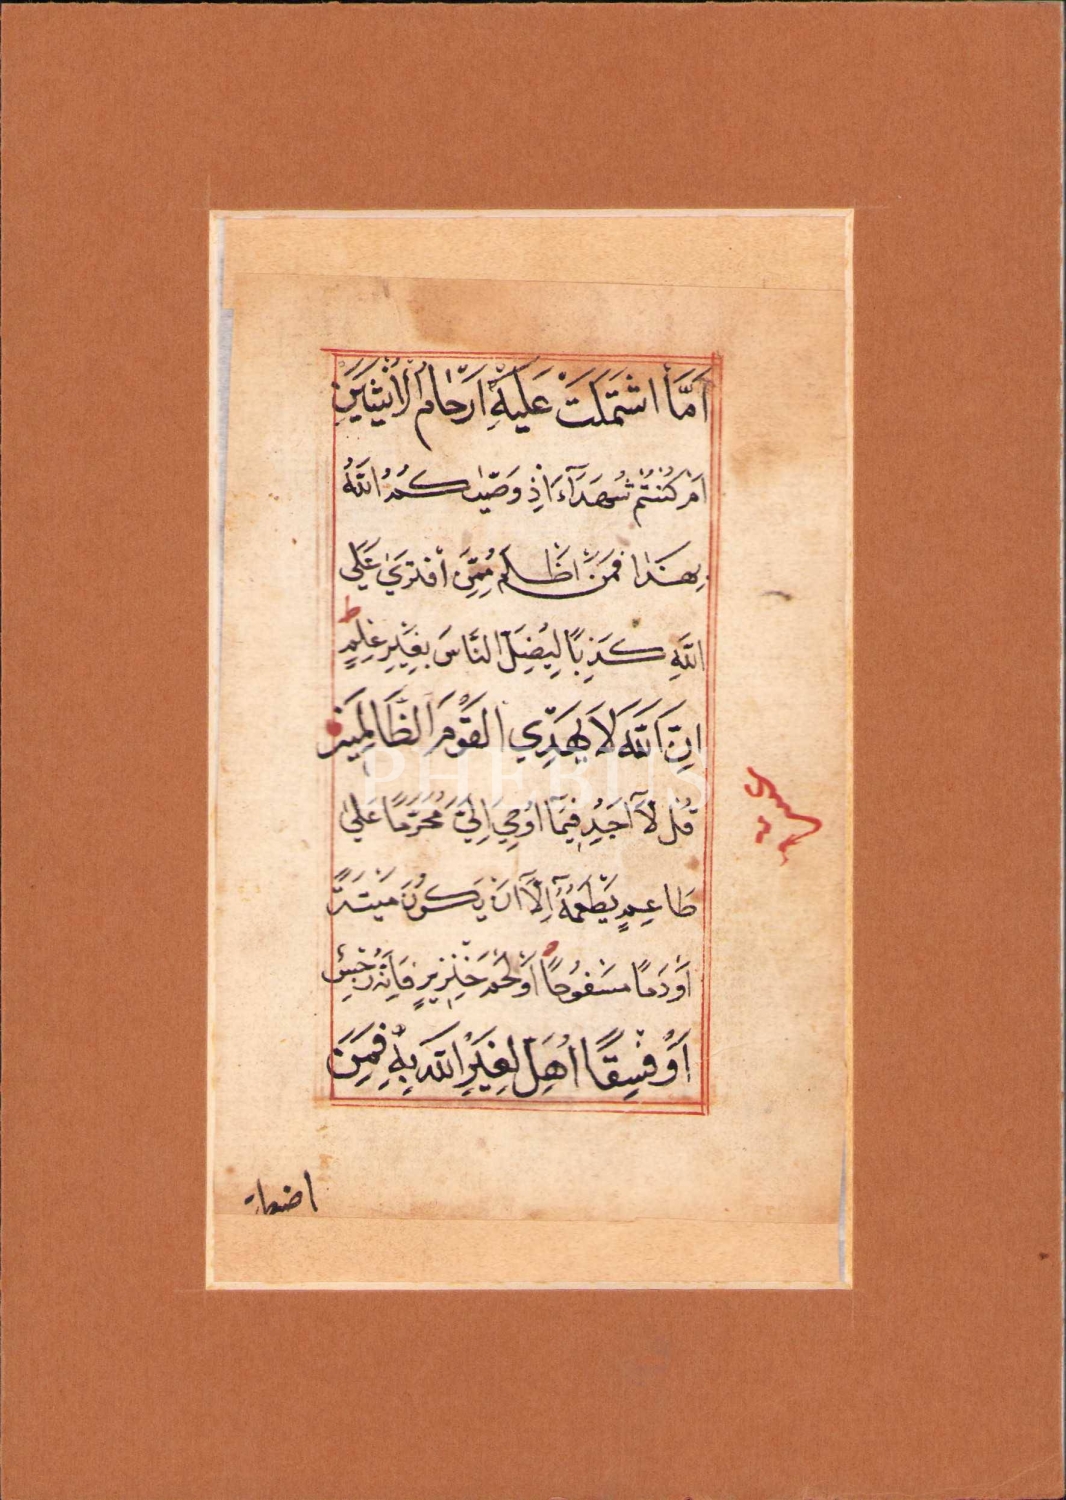 اَمَّا اشْتَمَلَتْ عَلَيْهِ اَرْحَامُ الْاُنْثَيَيْنِ
اَمْ كُنْتُمْ شُهَدَآءَ اِذْ وَصّٰيكُمُ اللّٰهُ
بِهٰذَا فَمَنْ اَظْلَمُ مِمَّنِ افْتَرٰي عَلَي
اللّٰهِ كَذِبًا لِيُضِلَّ النَّاسَ بِغَيْرِ عِلْمٍ ط
اِنَّ اللّٰهَ لَا يَهْدِي الْقَوْمَ الظَّالِمِينَ
قُلْ لَآ اَجِدُ فِيمَآ اُوحِيَ اِلَيَّ مُحَرَّمًا عَلٰي
طَاعِمٍ يَطْعَمُهُٓ اِلَّآ اَنْ يَكُونَ مَيْتَةً
اَوْ دَمًا مَسْفُوحًا اَوْ لَحْمَ خِنْزِيرٍ فَاِنَّهُ رِجْسٌ
اَوْ فِسْقًا اُهِلَّ لِغَيْرِ اللّٰهِ بِهِ فَمَنِ
PHEBUS
اضطر